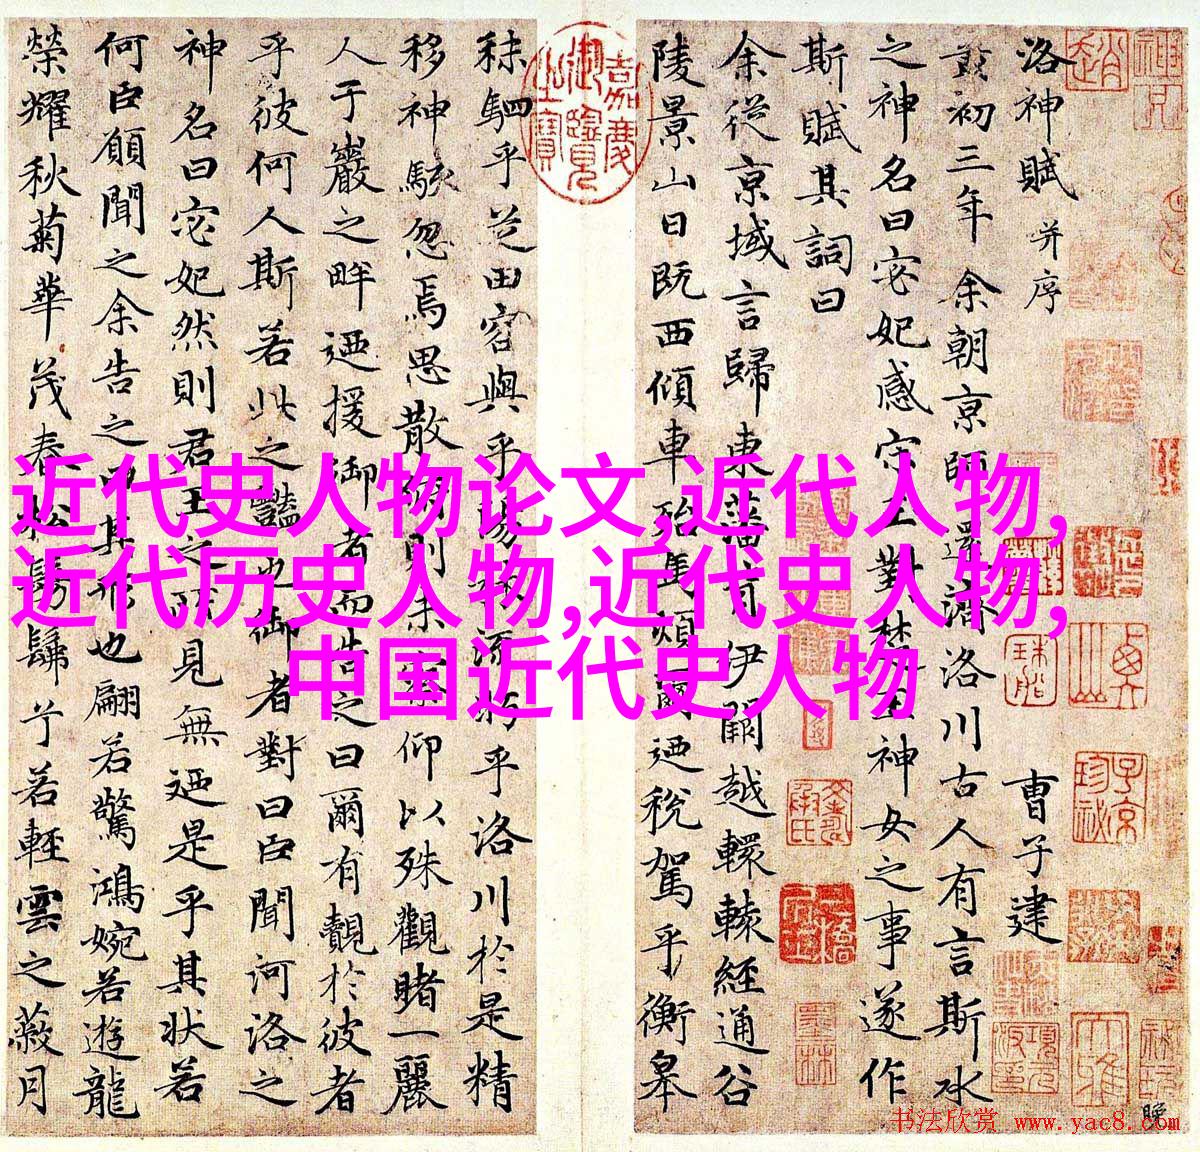 洛神賦 并序 曹子建
黄初三年余朝京師還濟洛川古人有言斯水
之神名曰宓妃感宋玉對楚王神女之事遂作
斯賦其詞曰
余從京域言歸東藩背伊闕越轘轅經通谷
陵景山日既西傾車殆馬煩爾迺稅駕乎衡皋
嘉慶御覽之寶
秣駟乎芝田容與乎陽林流眄乎洛川於是精
移神駭忽焉思散俯則未察仰以殊觀睹一麗
人于巖之畔迺援御者而告之曰爾有覿於彼者
乎彼何人斯若此之豔也御者對曰臣聞河洛之
神名曰宓妃然則君王之所見無迺是乎其狀若
何臣願聞之余告之曰其形也翩若驚鴻婉若遊龍
榮耀秋菊華茂春松髣髴兮若輕雲之蔽月
近代史人物论文,近代人物,
近代历史人物,近代史人物,
中国近代史人物
书法欣赏 www.yac8.com